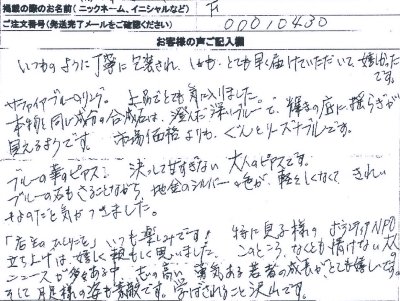 掲載の際のお名前(ニックネーム、イニシャルなど) F
ご注文番号(発送完了メールをご確認ください) 00010430
お客様の声ご記入欄
いつものように丁寧に包装され、しかも、とても早く届けていただいて、嬉しかった
です。
サファイヤブルーのリング。上品でとても気に入りました。
本物と同じ成分の合成石は、澄んだ深いブルーで、輝きの底に揺らぎが
見えるようです。市場価格よりも、ぐんとリーズナブルです。
ブルーの華のピアス。決して甘すぎない大人のピアスです。
ブルーの石もさることながら、地金のシルバー色が、軽々しくなくてきれい
なのだと気がつきました。
「店主のひとりごと」いつも楽しみです! 特に息子様のボランティアNPO
立ち上げは、嬉しく頼もしく思いました。このところ、なんとも情けない大人の
ニュースが多々ある中、志の高い、勇気ある若者の成長がとても嬉しいです。
そして店長様の姿も素敵です。学ばされること沢山です。